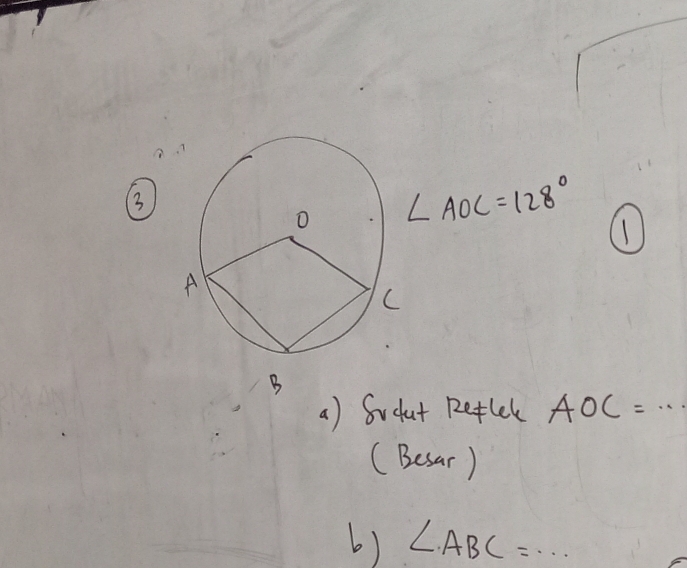 3
O
∠ AOC = 128°
1
A
C
B
a) Sudut Reflek AOC = ...
(Besar)
b) ∠ABC = ...